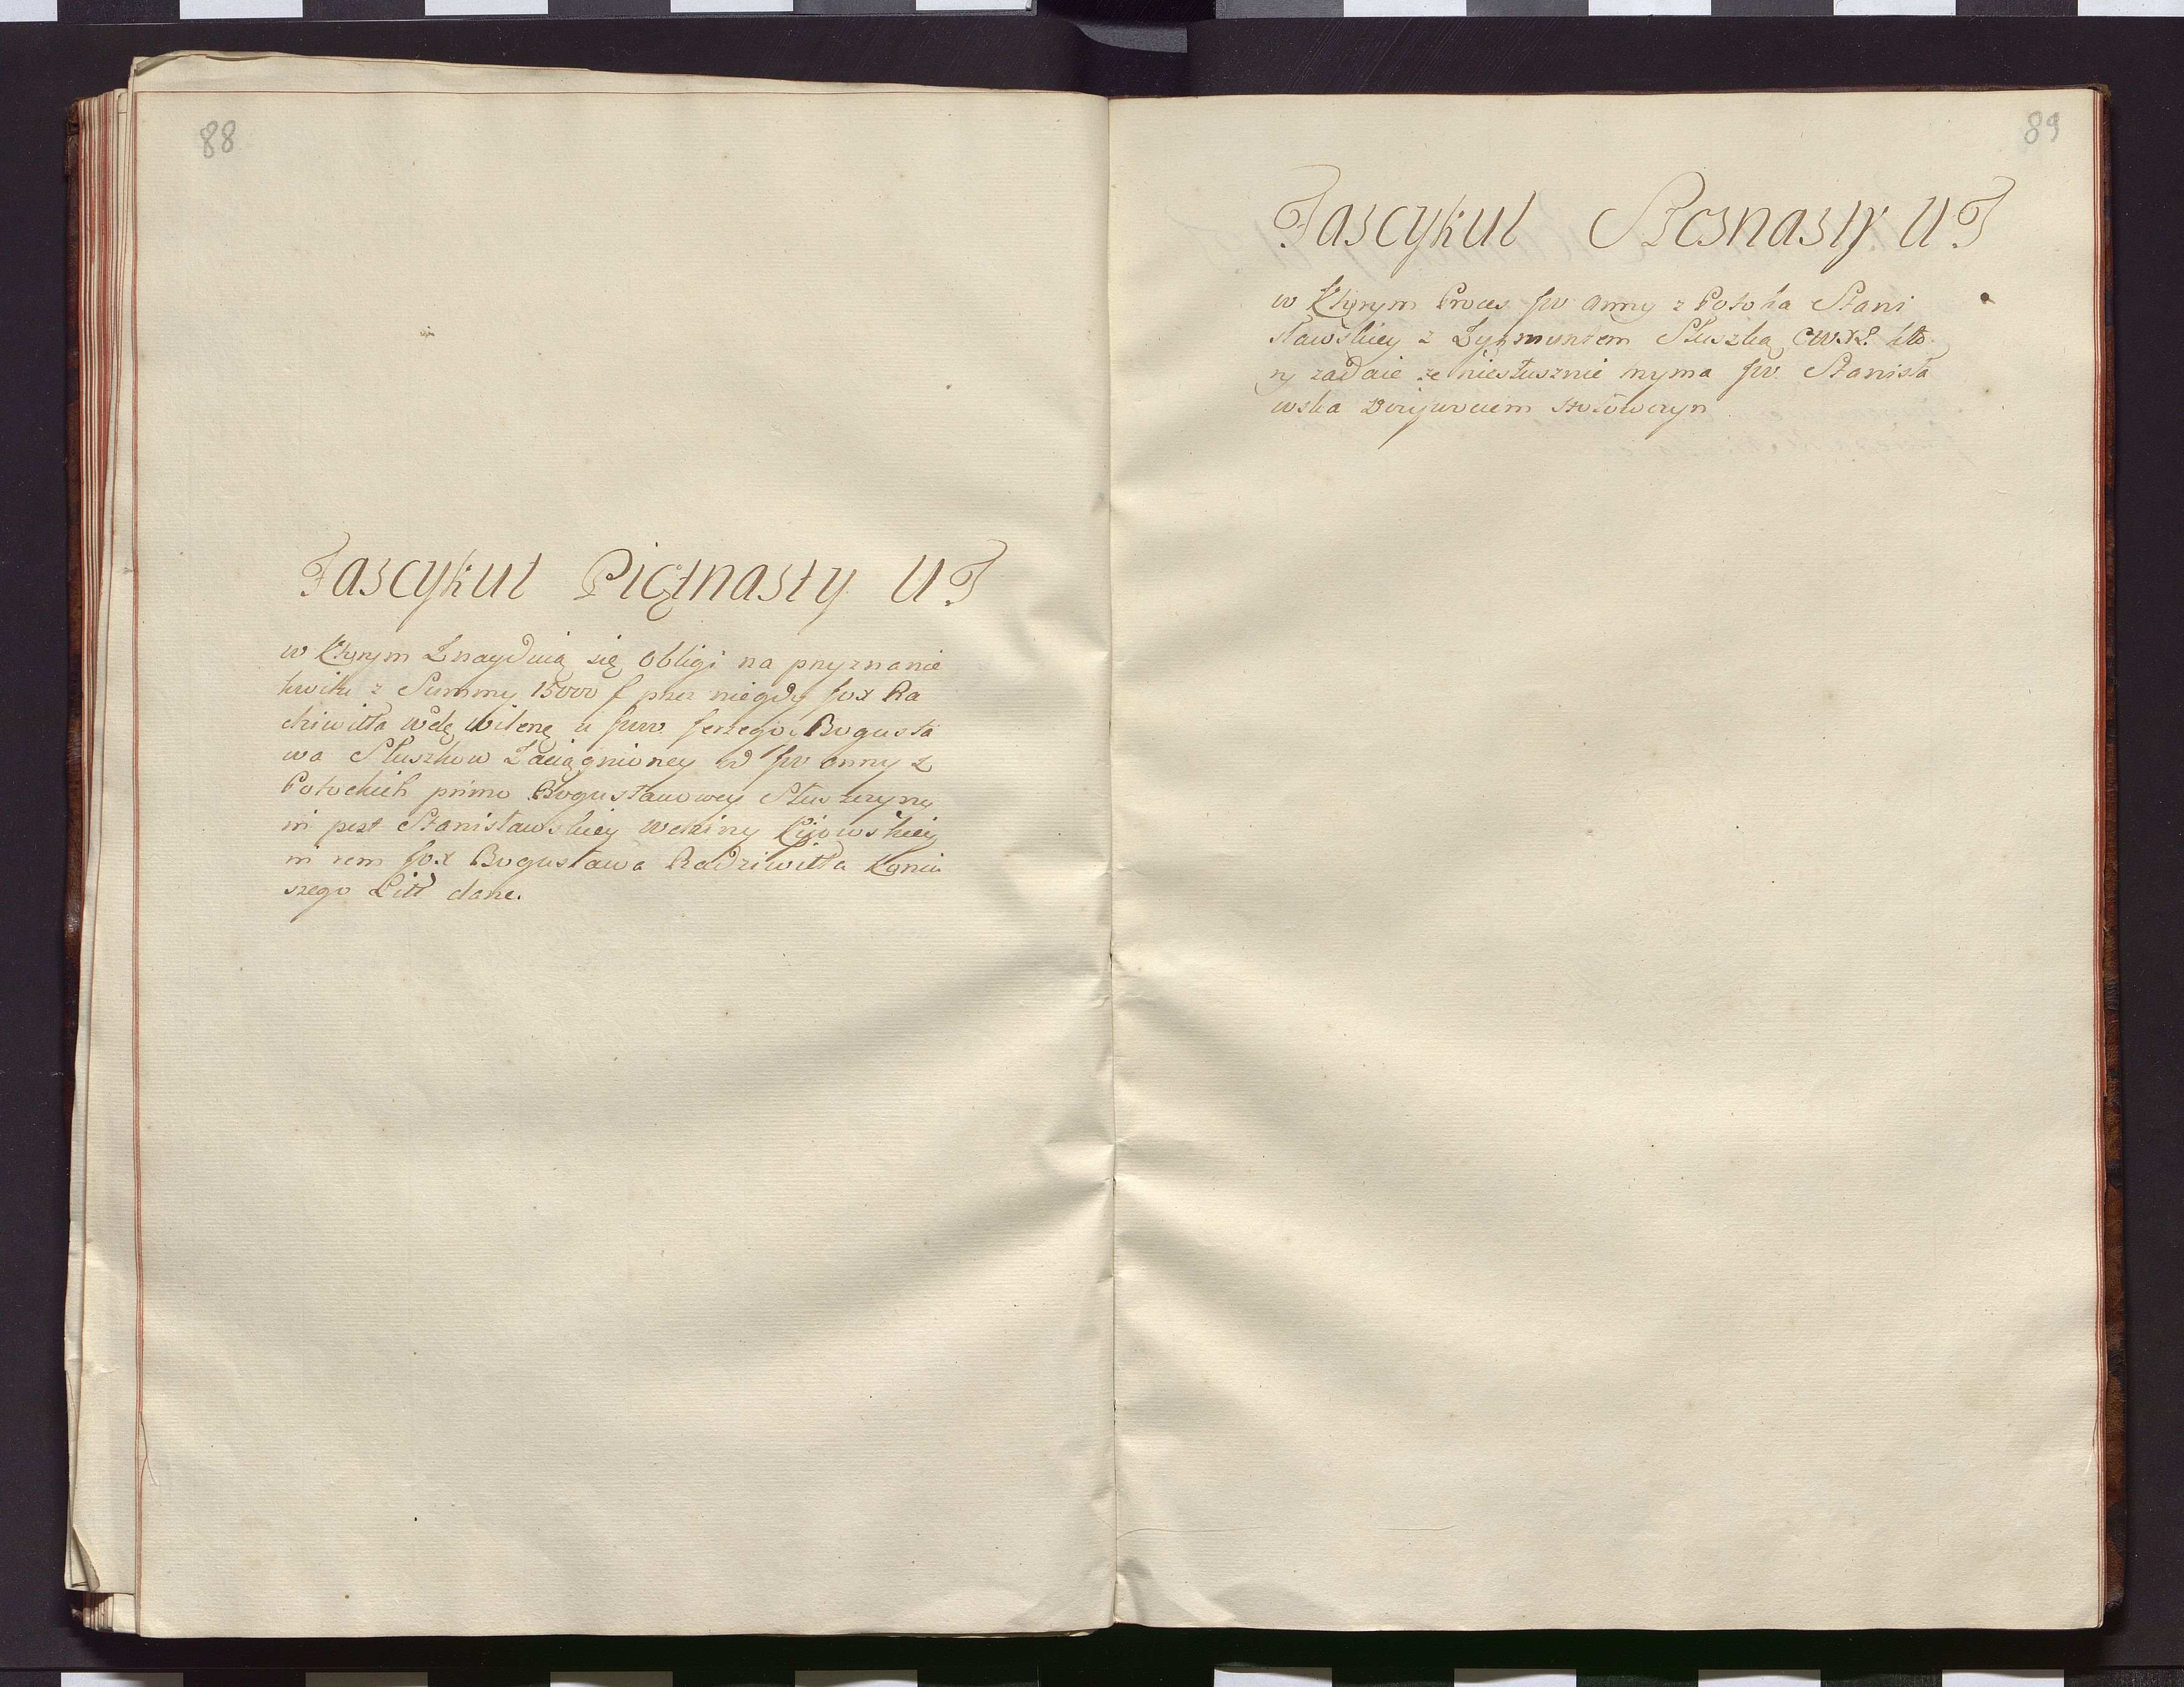 88
Fascykuł Piętnasty U J
w którym Znayduią się obligi na przyznanie
kwitu z Summy 15000 f przez niegdy JOX Ra
dziwiłła Wdę Wileng u JWW Jerzego, Bogusła
wa Słuszkow Zaciągnioney od JW Anny z
Potockich primo Bogusławowey Słuszczyny
ni pozt Stanisławskiey Wdziny Kijowskiey
in rem JOX Bogusława Radziwiłła Koniu
szego Litt dane.
89
Fascykuł Szesnasty U J
w którym Proces JW Anny z Potoka Stani
sławskiey z Zygmuntem Słuszką CWXL kto
ry zadaie że niesłusznie trzyma JW Stanisła
wska Dożywociem